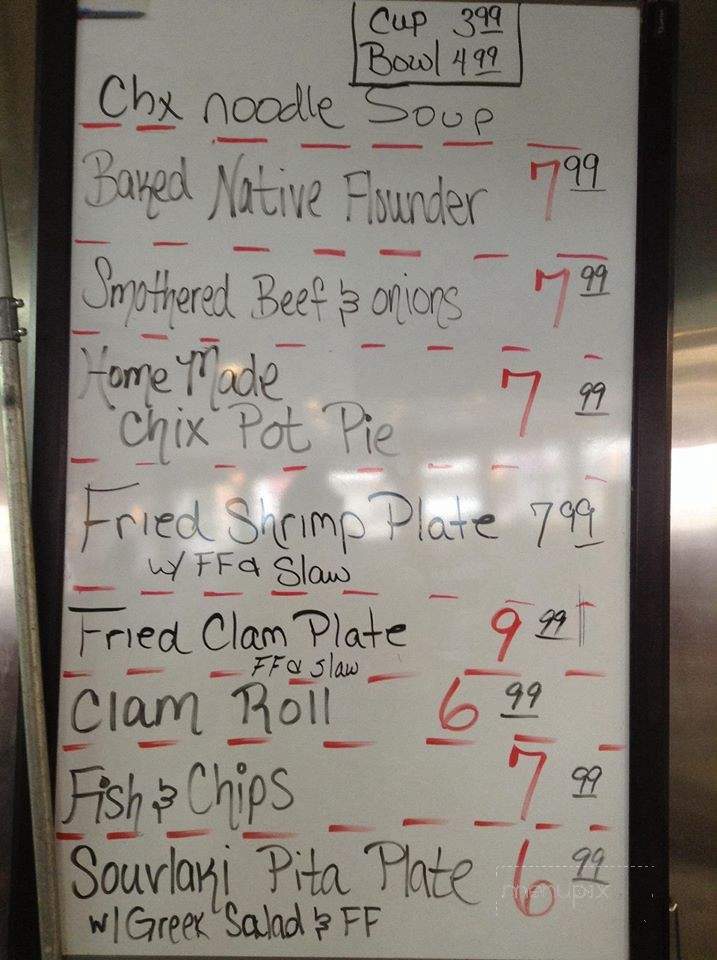 Cup 3.99
Bowl 4.99
Chx noodle Soup
Baked Native Flounder 7.99
Smothered Beef & onions 7.99
Home Made 7.99
Chix Pot Pie
Fried Shrimp Plate 7.99
w/ FF & Slaw
Fried Clam Plate 9.99
FF & Slaw
Clam Roll 6.99
Fish & Chips 7.99
Souvlaki Pita Plate 6.99
w/ Greek Salad & FF
menupix